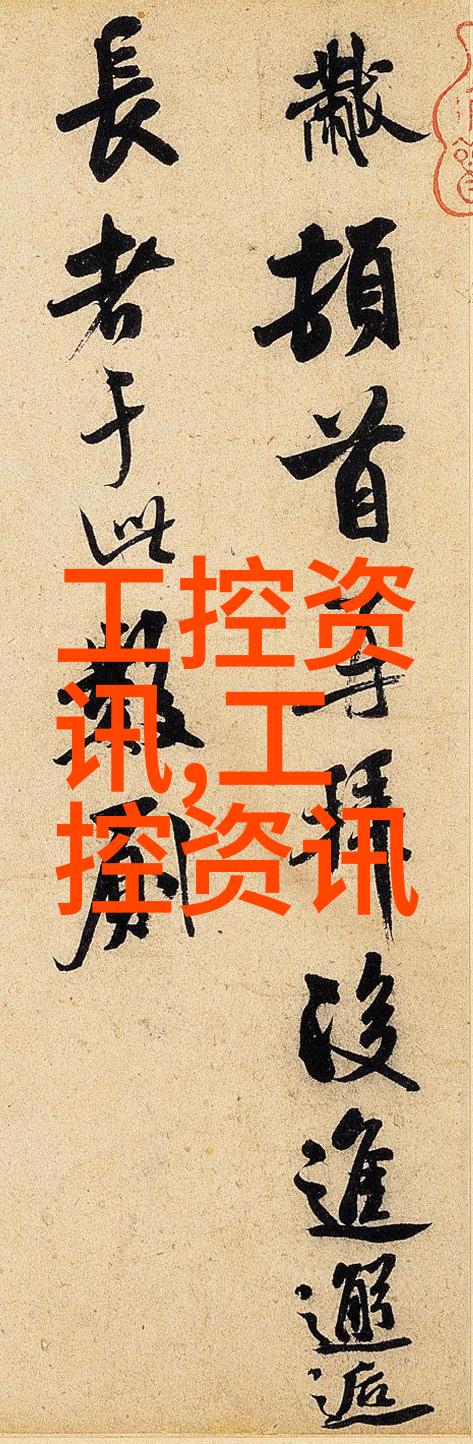 黻頓首再拜後進邂逅
長者于此數廁
工控资
讯,工
控资讯